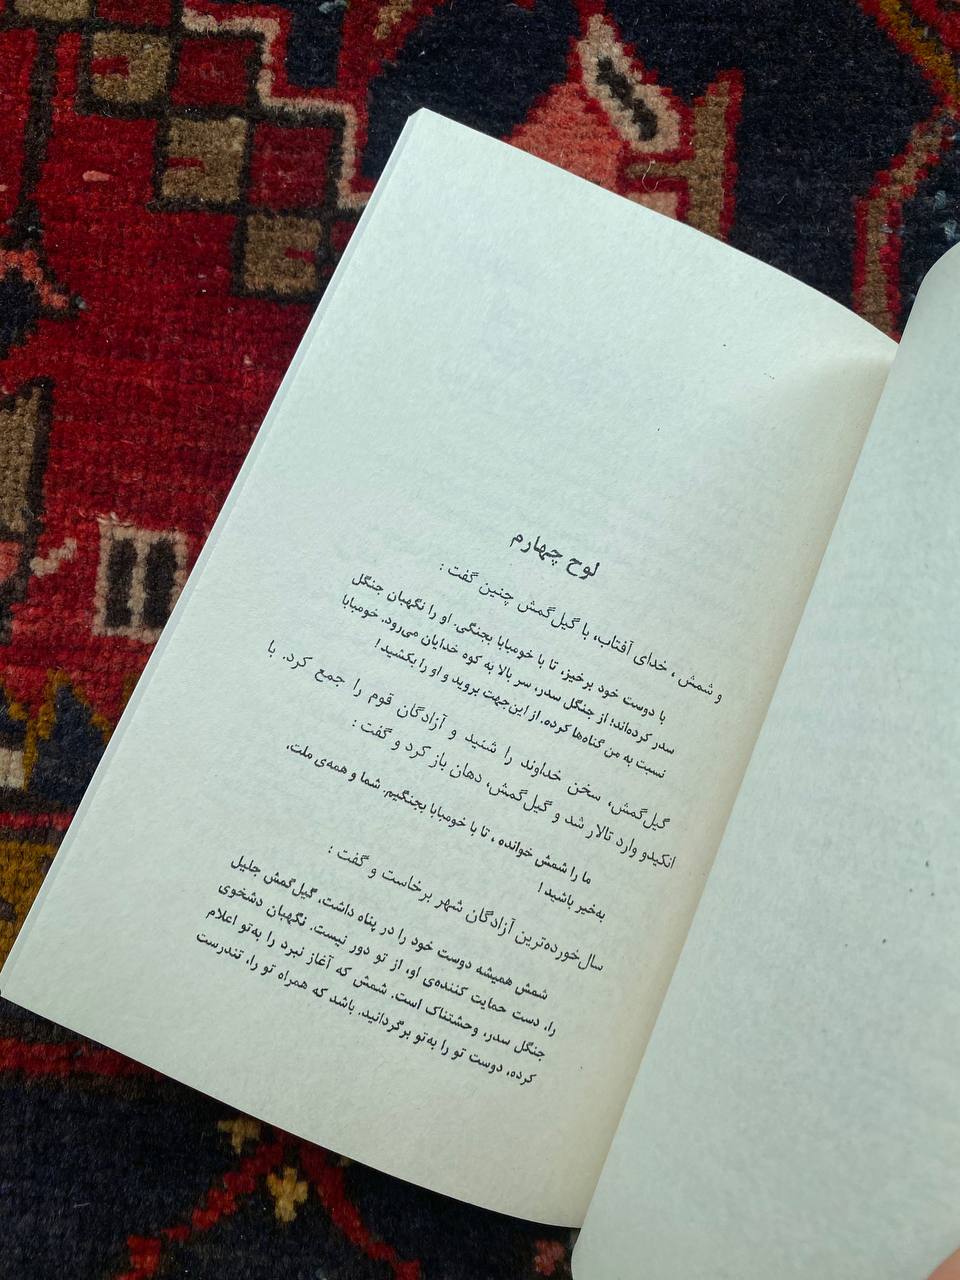 لوح چهارم
و شمش، خدای آفتاب، با گیل‌گمش چنین گفت:
با دوست خود برخیز، تا با خومبابا بجنگی. او را نگهبان جنگل
سدر کرده‌اند؛ از جنگل سدر، سر بالا به کوه خدایان می‌رود. خومبابا
نسبت به من گناه‌ها کرده. از این‌جهت بروید و او را بکشید!
گیل‌گمش، سخن خداوند را شنید و آزادگان قوم را جمع کرد. با
انکیدو وارد تالار شد و گیل‌گمش، دهان باز کرد و گفت:
ما را شمش خوانده، تا با خومبابا بجنگیم. شما و همه‌ی ملت،
به‌خیر باشید!
سال‌خورده‌ترین آزادگان شهر برخاست و گفت:
شمش همیشه دوست خود را در پناه داشت، گیل‌گمش جلیل
را. دست حمایت کننده‌ی او، از تو دور نیست. نگهبان دشخوی
جنگل سدر، وحشتناک است. شمش که آغاز نبرد را به‌تو اعلام
کرده، دوست تو را به‌تو برگردانید. باشد که همراه تو را، تندرست